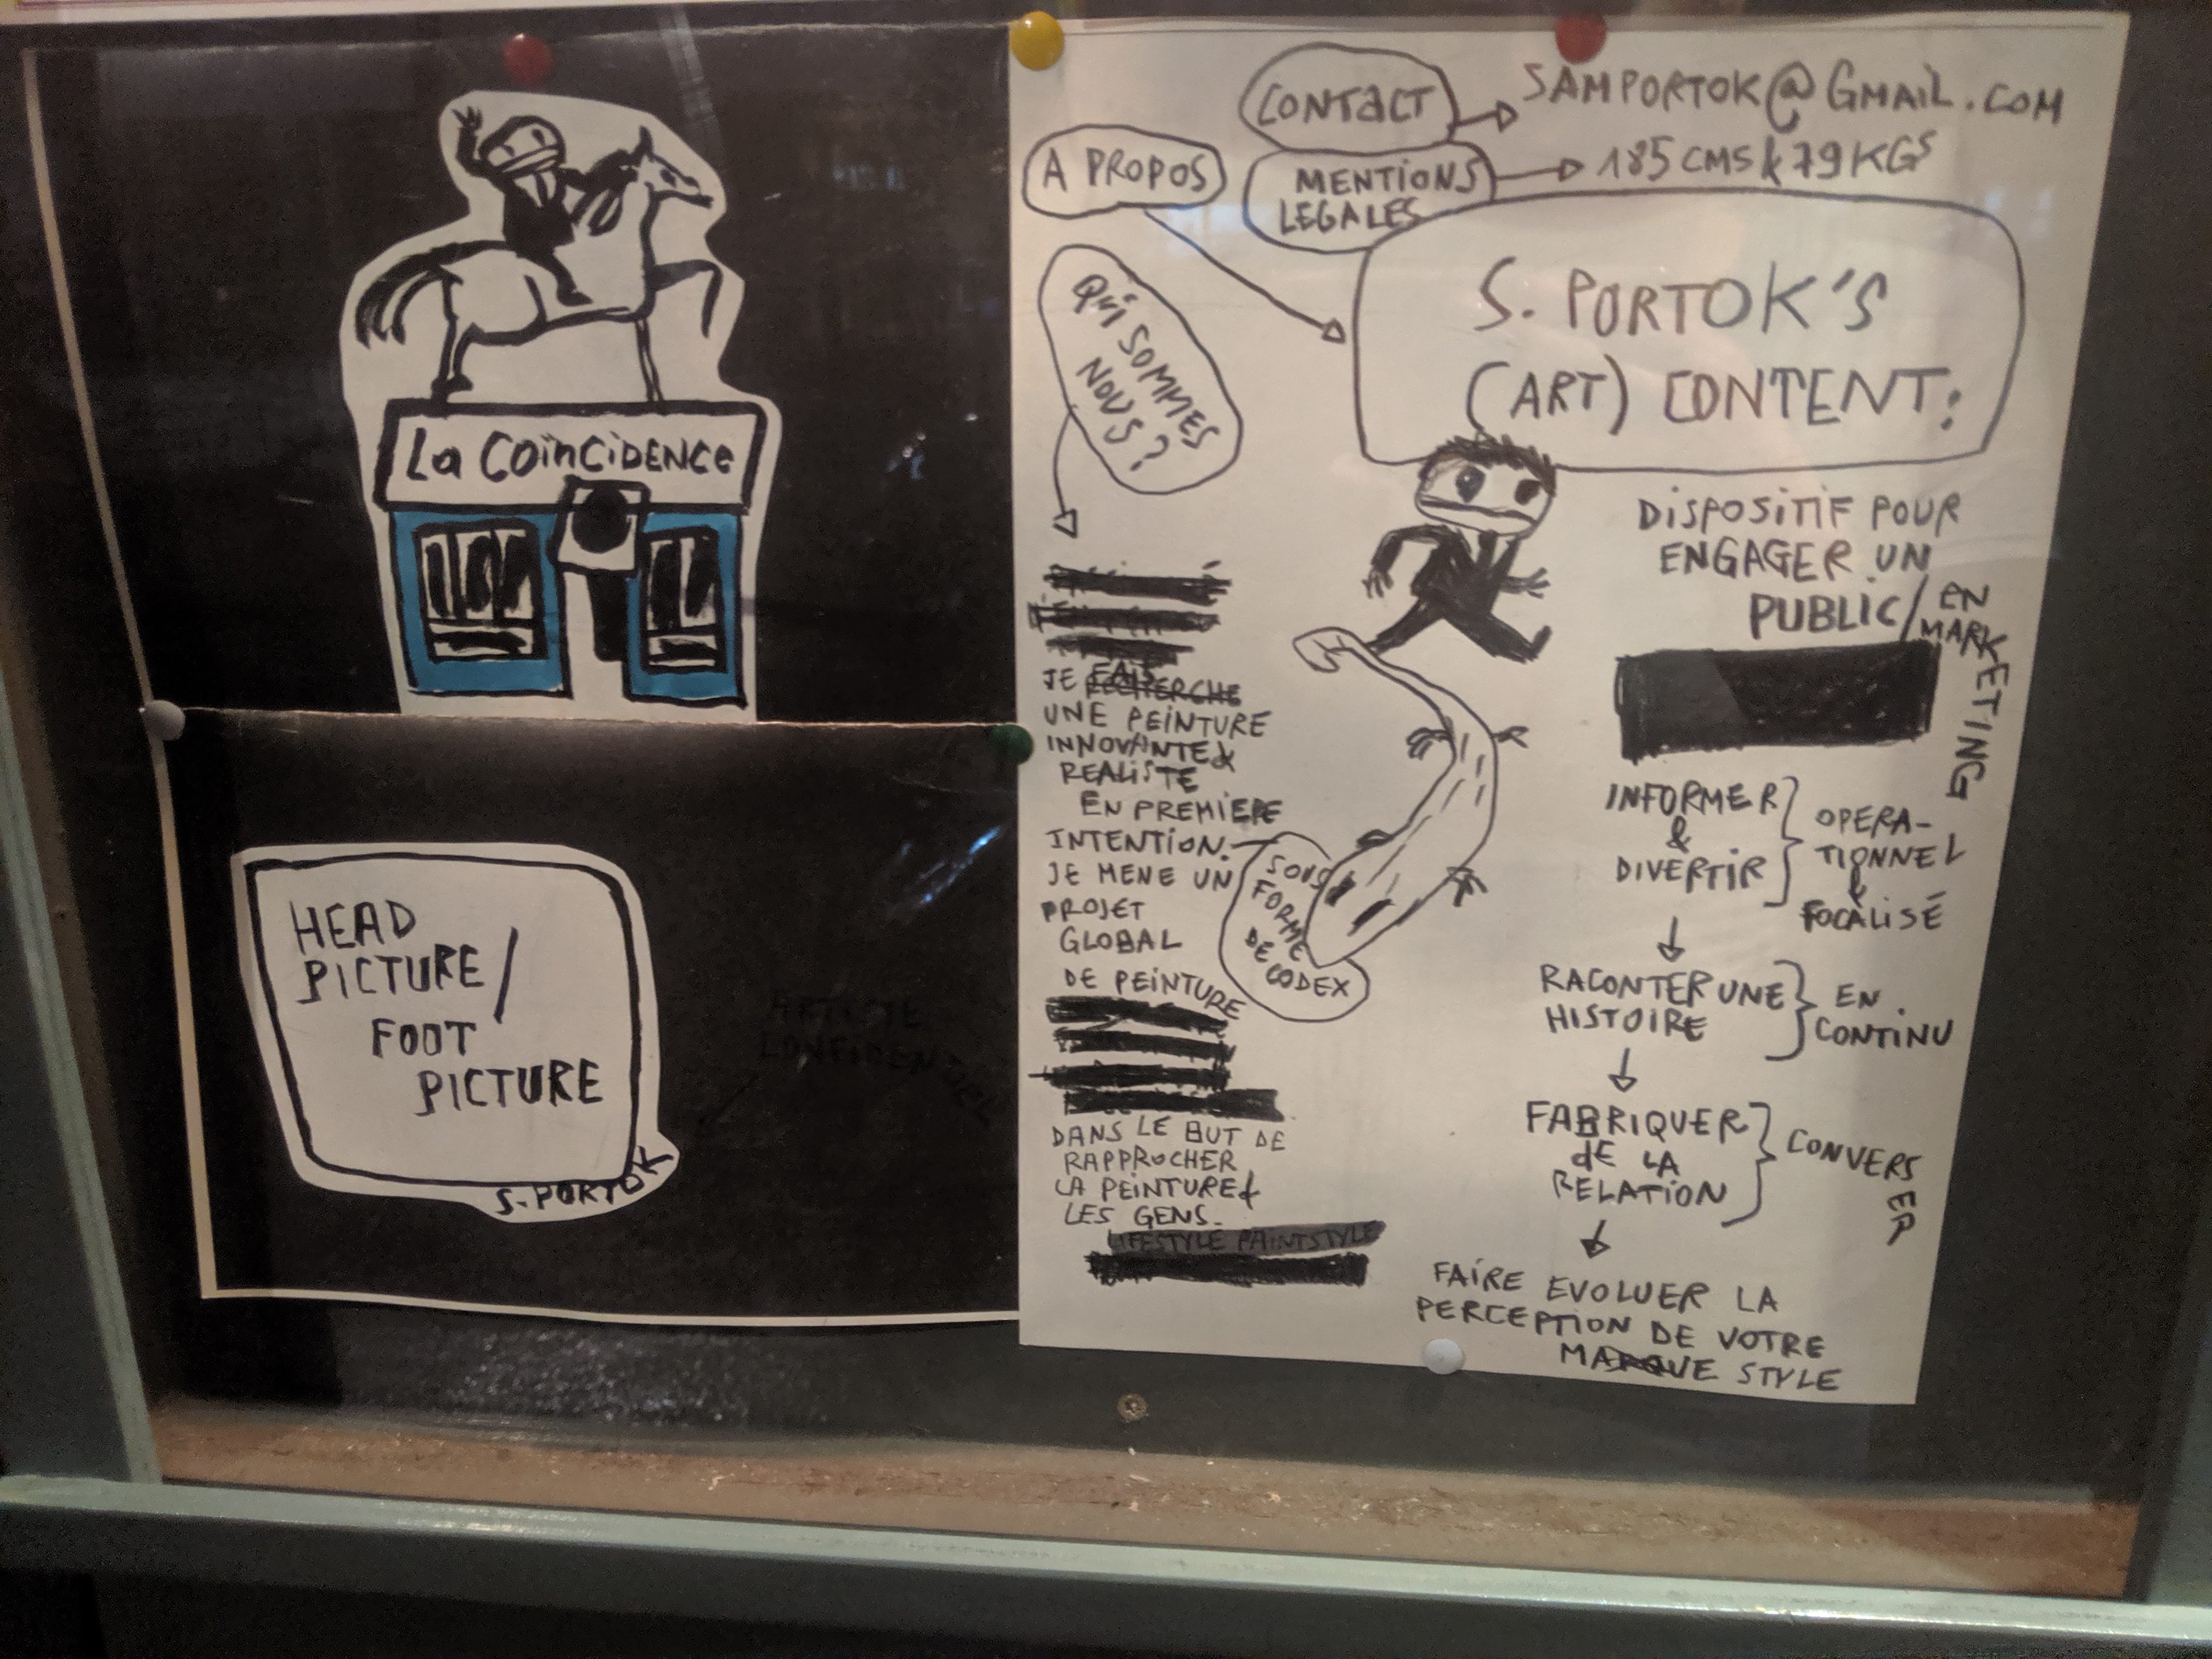 La COiNCiDENCe
HEAD
PICTURE/
FOOT
PICTURE
S-PORTOK
ARTISTE
CONFIDENTIEL
CONTACT
SAMPORTOK@GMAIL.COM
A PROPOS
MENTIONS
LEGALES
185 CMS & 79 KGS
S. PORTOK'S
(ART) CONTENT:
QUI SOMMES
NOUS ?
JE FAIS
RECHERCHE
UNE PEINTURE
INNOVANTE &
REALISTE
EN PREMIERE
INTENTION.
JE MENE UN
PROJET
GLOBAL
DE PEINTURE
SOUS
FORME
DE
CODEX
DANS LE BUT DE
RAPPROCHER
LA PEINTURE &
LES GENS.
LIFESTYLE PAINTSTYLE
DISPOSITIF POUR
ENGAGER UN
PUBLIC/
EN
MARKETING
INFORMER
&
DIVERTIR
OPERA-
TIONNEL
&
FOCALISÉ
RACONTER UNE
HISTOIRE
EN
CONTINU
FABRIQUER
dE LA
RELATION
CONVERSER
FAIRE EVOLUER LA
PERCEPTION DE VOTRE
MARQUE STYLE